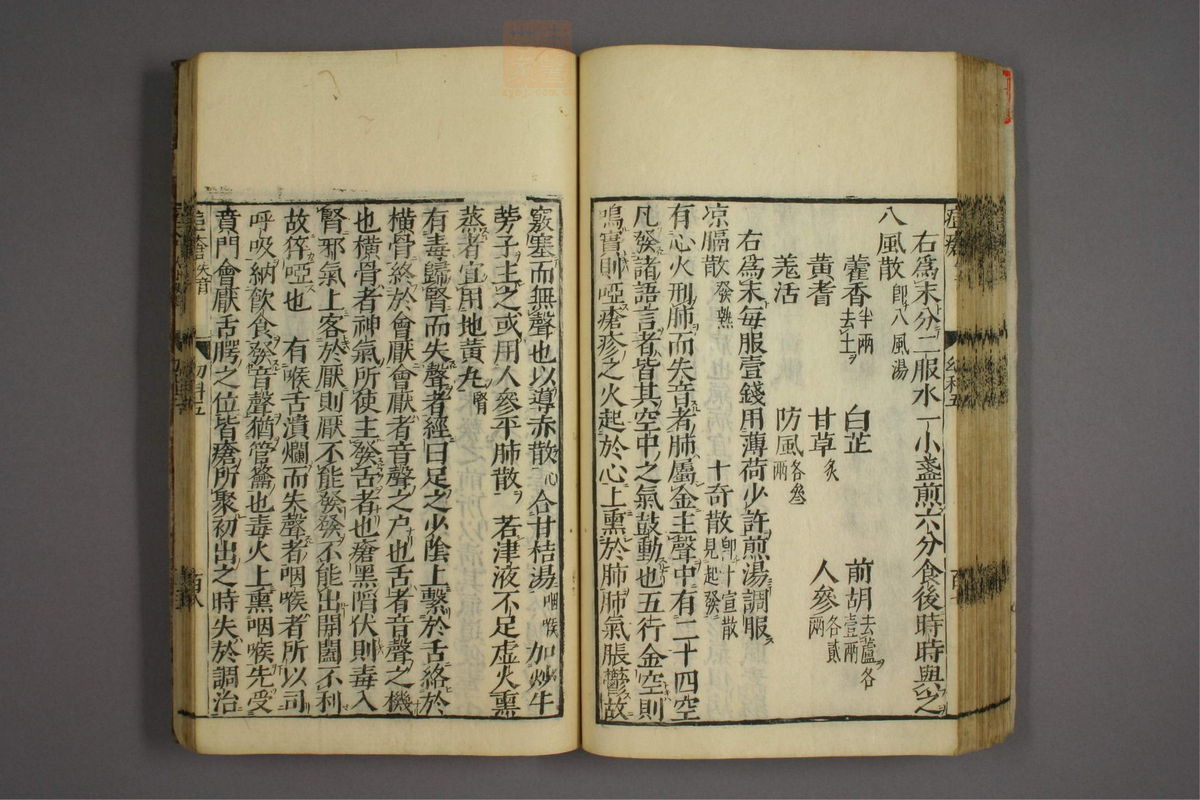 右爲末分二服水一小盞煎六分食後時時與之
八風散即八風湯
藿香半兩去土 白芷 前胡去蘆各壹兩
黃耆 甘草炙 人參各貳兩
羗活 防風各叄兩
右爲末每服壹錢用薄荷少許煎湯調服
凉膈散發熱 十奇散即十宣散見起發
有心火刑肺而失音者肺屬金主聲中有二十四空
凡發諸語言者皆其空中之氣鼓動也五行金空則
鳴實則啞瘡疹之火起於心上熏於肺肺氣脹鬱故
竅塞而無聲也以導赤散心合甘桔湯咽喉加炒牛
旁子主之或用人參平肺散 若津液不足虛火熏
蒸者宜用地黃丸腎
有毒歸腎而失聲者經曰足之少陰上繫於舌絡於
橫骨終於會厭會厭者音聲之户也舌者音聲之機
也橫骨者神氣所使主發舌者也瘡黑陷伏則毒入
腎邪氣上客於厭則厭不能發發不能出開闔不利
故猝啞也 有喉舌潰爛而失聲者咽喉者所以司
呼吸納飲食發音聲猶管籥也毒火上熏咽喉先受
賁門會厭舌腭之位皆瘡所聚初出之時失於調治
失音